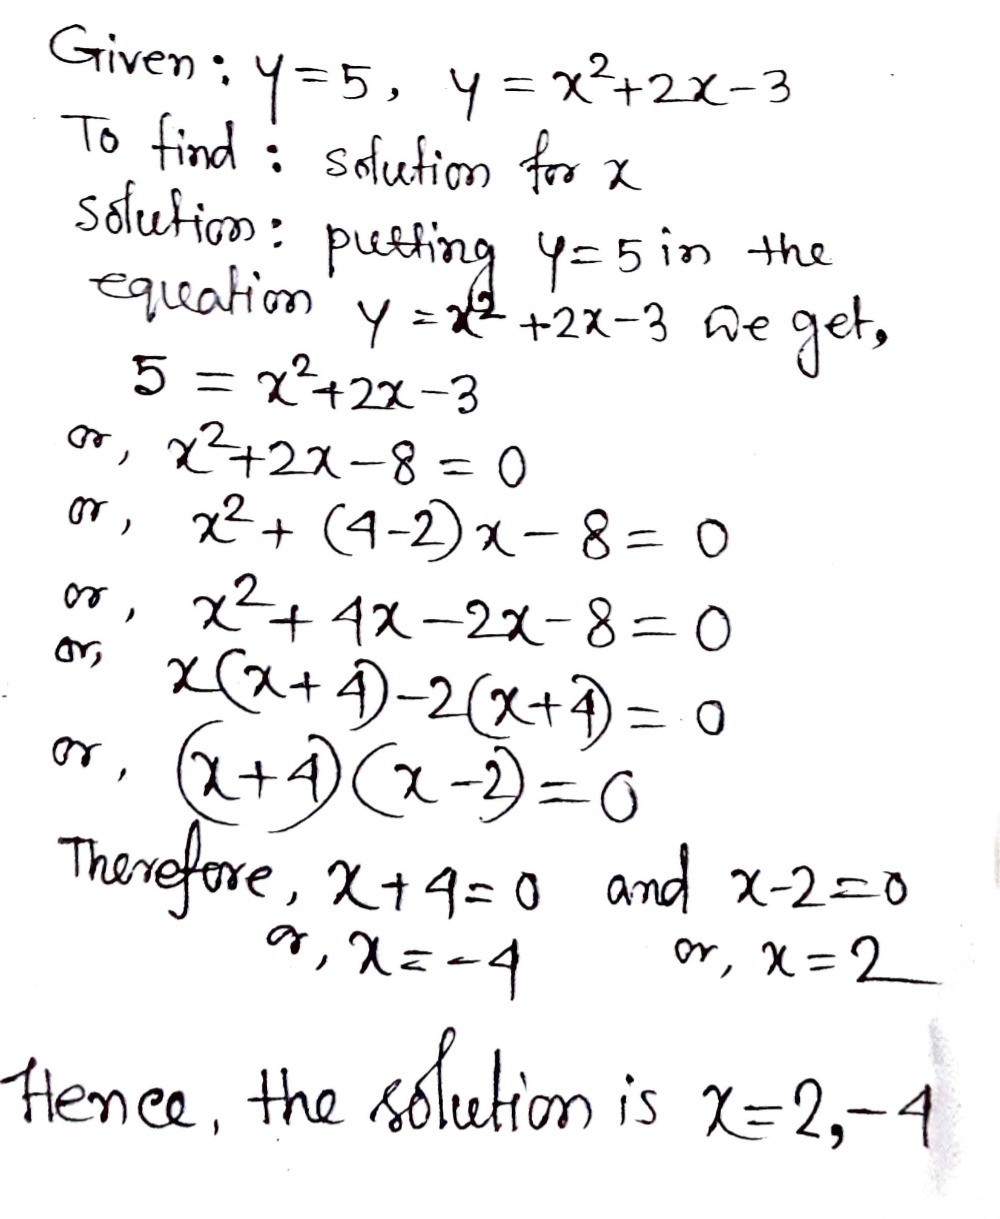 Given: y=5, y = x²+2x-3
To find : solution for x
solution: putting y=5 in the
equation y = x² +2x-3 we get,
5 = x²+2x-3
or, x²+2x-8 = 0
or, x²+ (4-2)x-8= 0
or, x²+ 4x-2x-8=0
or, x(x+4)-2(x+4)=0
or, (x+4)(x-2)=0
Therefore, x+4=0 and x-2=0
or, x=-4 or, x=2
Hence, the solution is x=2,-4